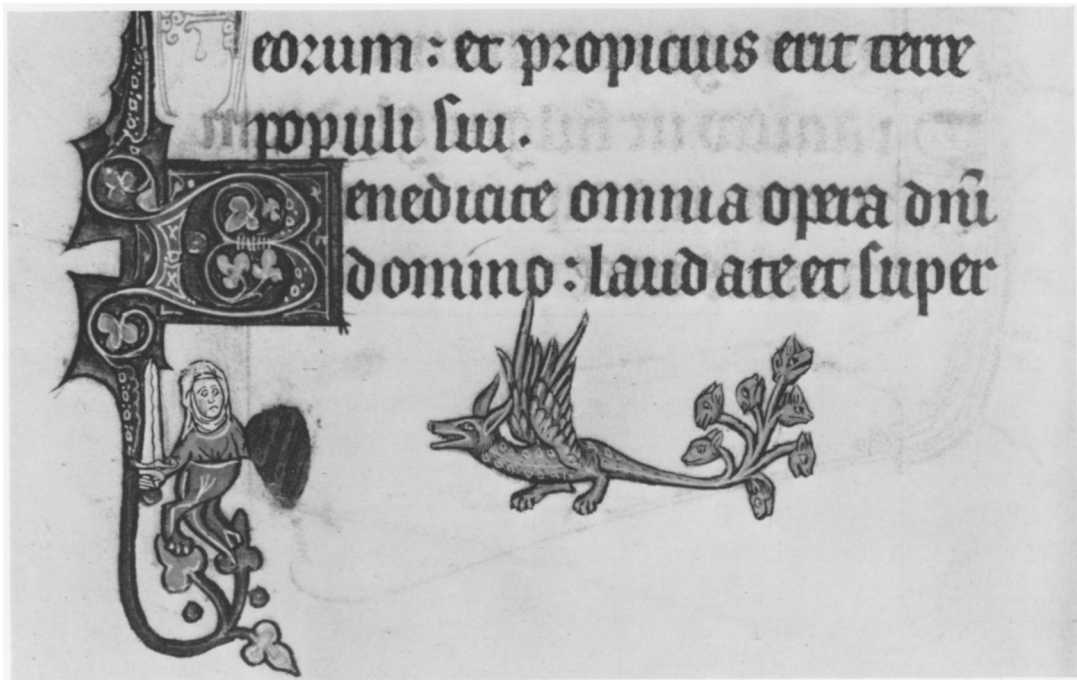 eorum : et propicius erit terre
populi sui .
Benedicite omnia opera dn̄i
domino : laudate et super